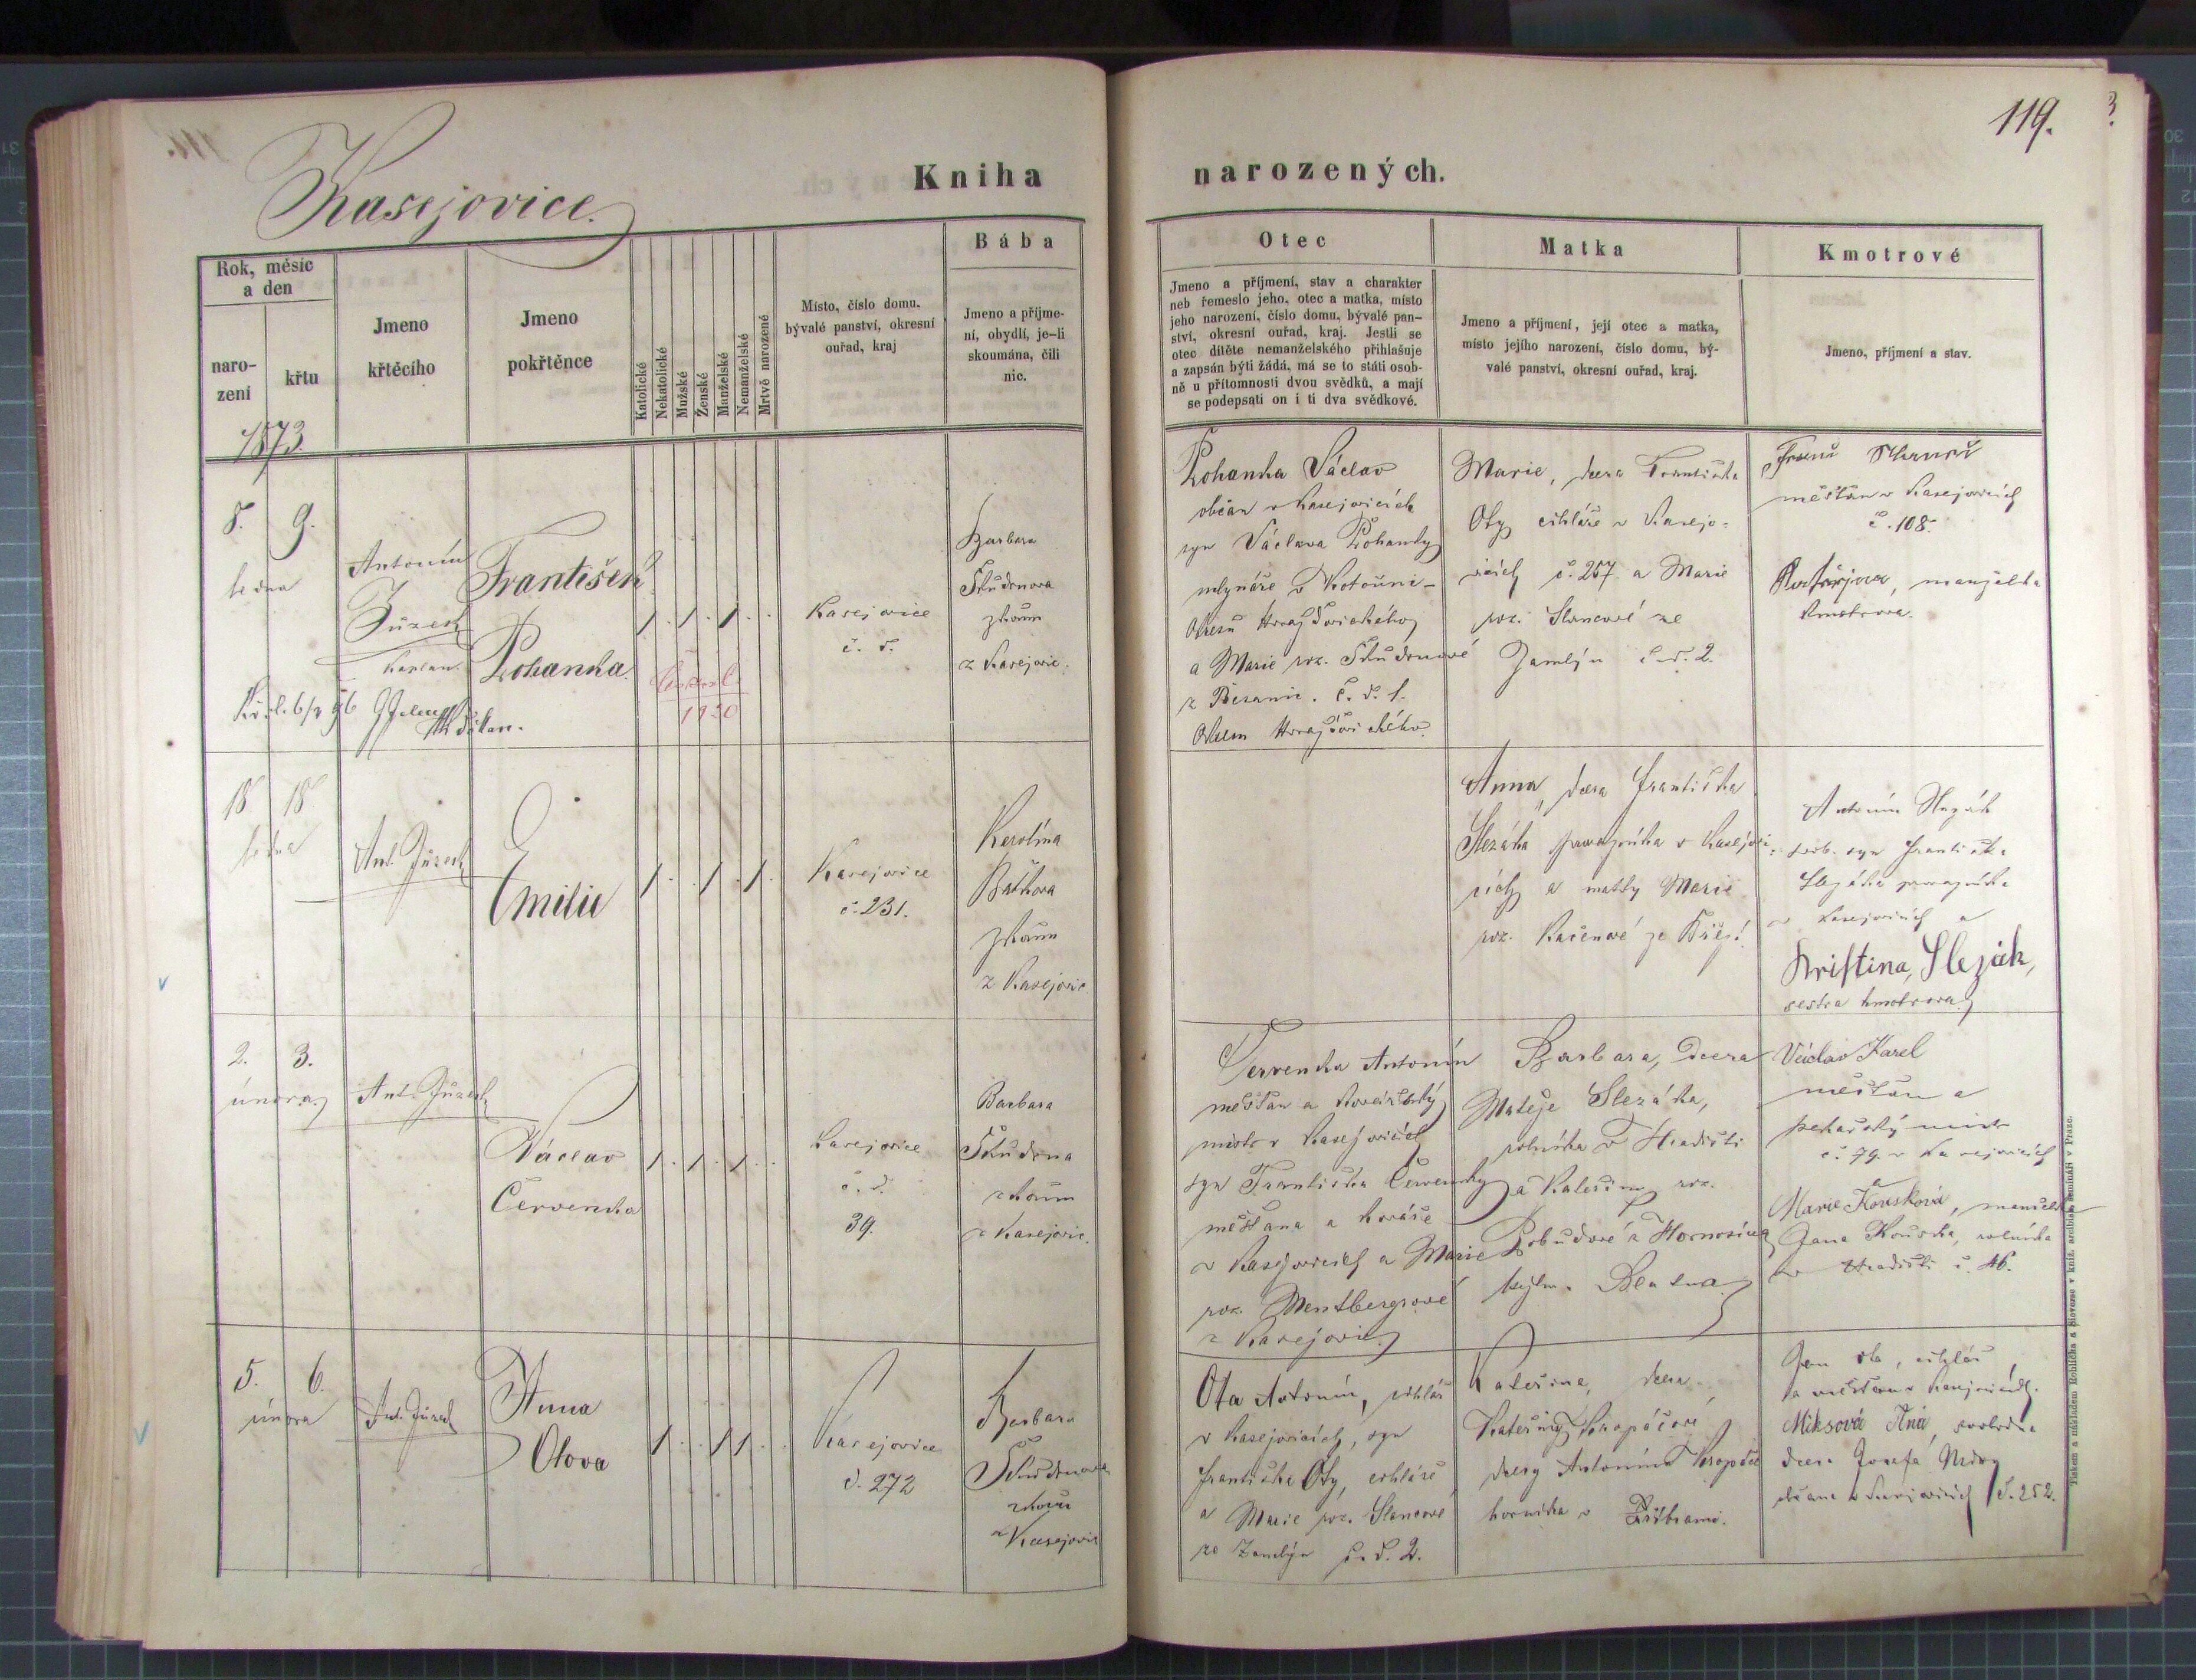 119.
Kasejovice.
Kniha narozených.
Rok, měsíc
a den
naro-
zení
křtu
Jmeno
křtěcího
Jmeno
pokřtěnce
Katolické
Nekatolické
Mužské
Ženské
Manželské
Nemanželské
Mrtvě narozené
Místo, číslo domu,
bývalé panství, okresní
ouřad, kraj
Bába
Jmeno a příjme-
ní, obydlí, je-li
skoumána, čili
nic.
Otec
Jmeno a příjmení, stav a charakter
neb řemeslo jeho, otec a matka, místo
jeho narození, číslo domu, bývalé pan-
ství, okresní ouřad, kraj. Jestli se
otec dítěte nemanželského přihlašuje
a zapsán býti žádá, má se to státi osob-
ně u přítomnosti dvou svědků, a mají
se podepsati on i ti dva svědkové.
Matka
Jmeno a příjmení, její otec a matka,
místo jejího narození, číslo domu, bý-
valé panství, okresní ouřad, kraj.
Kmotrové
Jmeno, příjmení a stav.
1873.
8. 9.
ledna
Antonín
Jůzek
kaplan
František
Pohanka
1 . 1 . 1 . .
1920
Kasejovice
č. d.
Barbara
Škudrnova
zkoum
z Kasejovic.
Pohanka Václav
občan v Kasejovicích
syn Václava Pohanky
mlynáře v Kotouni
Okresu Horažďovického
a Marie roz. Škudrnové
č. d. 1.
Okresu Horažďovického
Marie, dcera Františka
Oty cihláře v Kasejo-
vicích č. 257. a Marie
roz. Slancové ze
Zamlýn č. d. 2.
měšťan v Kasejovicích
č. 108.
manželka
kmotrova.
18 18.
ledna
Ant. Jůzek
Emilie
1 . . 1 . 1 .
Kasejovice
č. 231.
Karolína
zkoum
z Kasejovic.
Anna, dcera Františka
Slezáka v Kasejovi-
cích a matky Marie
roz. Kačerové
Antonín Slezák
svob. syn Františka
Slezáka
v Kasejovicích a
Kristina, Slezák,
sestra kmotrova
2. 3.
února
Ant. Jůzek
Václav
Červenka
1 . 1 . 1 . .
Kasejovice
č. d.
39.
Barbara
Škudrna
zkoum
z Kasejovic.
Červenka Antonín
měšťan a kovářský
mistr v Kasejovicích
syn Františka Červenky
měšťana a kováře
v Kasejovicích a Marie
roz. Mentbergrové
z Kasejovic
Barbara, dcera
Matěje Slezáka,
rolníka v Hradišti
a Kateřiny roz.
Blatna
Václav Karel
měšťan a
pekařský mistr
č. 79. v Kasejovicích
a
Marie Kouskova, manželka
Jana Kouska, rolníka
v Hradišti č. 46.
5. 6.
února
Ant. Jůzek
Anna
Otova
1 . . 1 1 . .
Kasejovice
č. 272
Barbara
Škudrnova
zkoum
z Kasejovic
Ota Antonín, cihlář
v Kasejovicích, syn
Františka Oty, cihláře
a Marie roz. Slancové
ze Zamlýn č. d. 2.
Kateřina, dcera
Kateřiny Kropáčové
dcery Antonína Kropáče
horníka v Příbrami.
Jan Ota, cihlář
a měšťan v Kasejovicích.
Miksová Aná, svobodna
dcera Josefa
občana v Kasejovicích č. 252.
Tiskem a nákladem Rohlíčka a Sieversa v kníž. arcibisk. semináři v Praze.